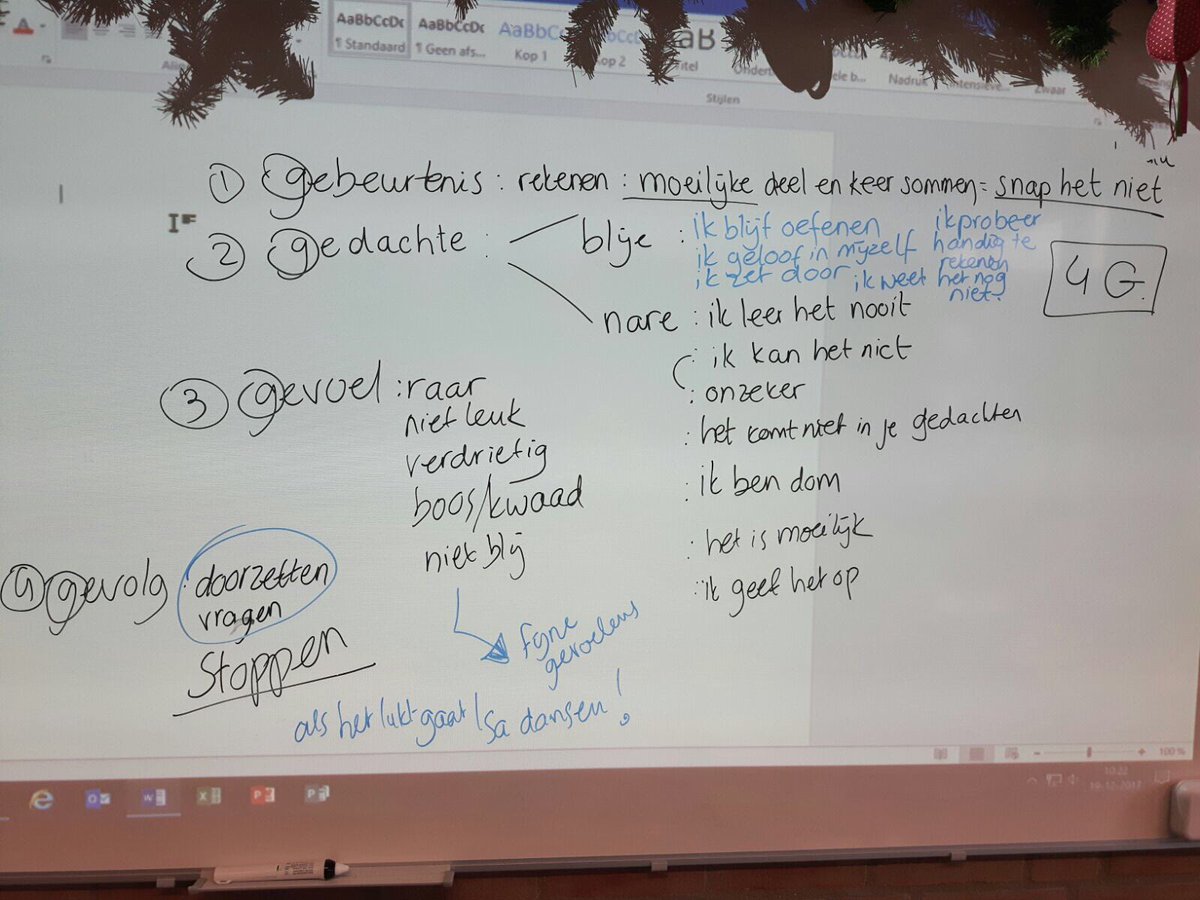 AaBbCcDc AaBbCcDc AaBbCc
¶ Standaard ¶ Geen afs... Kop 1 Kop 2 Titel Nadruk Intensieve... Zwaar
Stijlen
① gebeurtenis : rekenen : moeilijke deel en keer sommen = snap het niet
② gedachte :
blije : ik blijf oefenen
ik geloof in mijzelf
ik zet door
ik probeer
handig te
rekenen
ik weet het nog
niet.
4 G.
nare : ik leer het nooit
: ik kan het niet
: onzeker
: het komt niet in je gedachten
: ik ben dom
: het is moeilijk
: ik geef het op
③ gevoel : raar
niet leuk
verdrietig
boos/kwaad
niet blij
fijne
gevoelens
④ gevolg : doorzetten
vragen
Stoppen
als het lukt gaat Isa dansen!
100%
10:22
19-12-2017